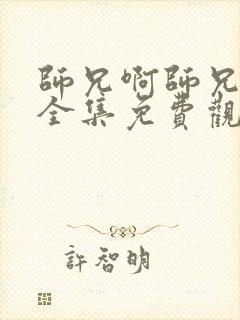 師兄啊師兄
全集免費觀
許智明